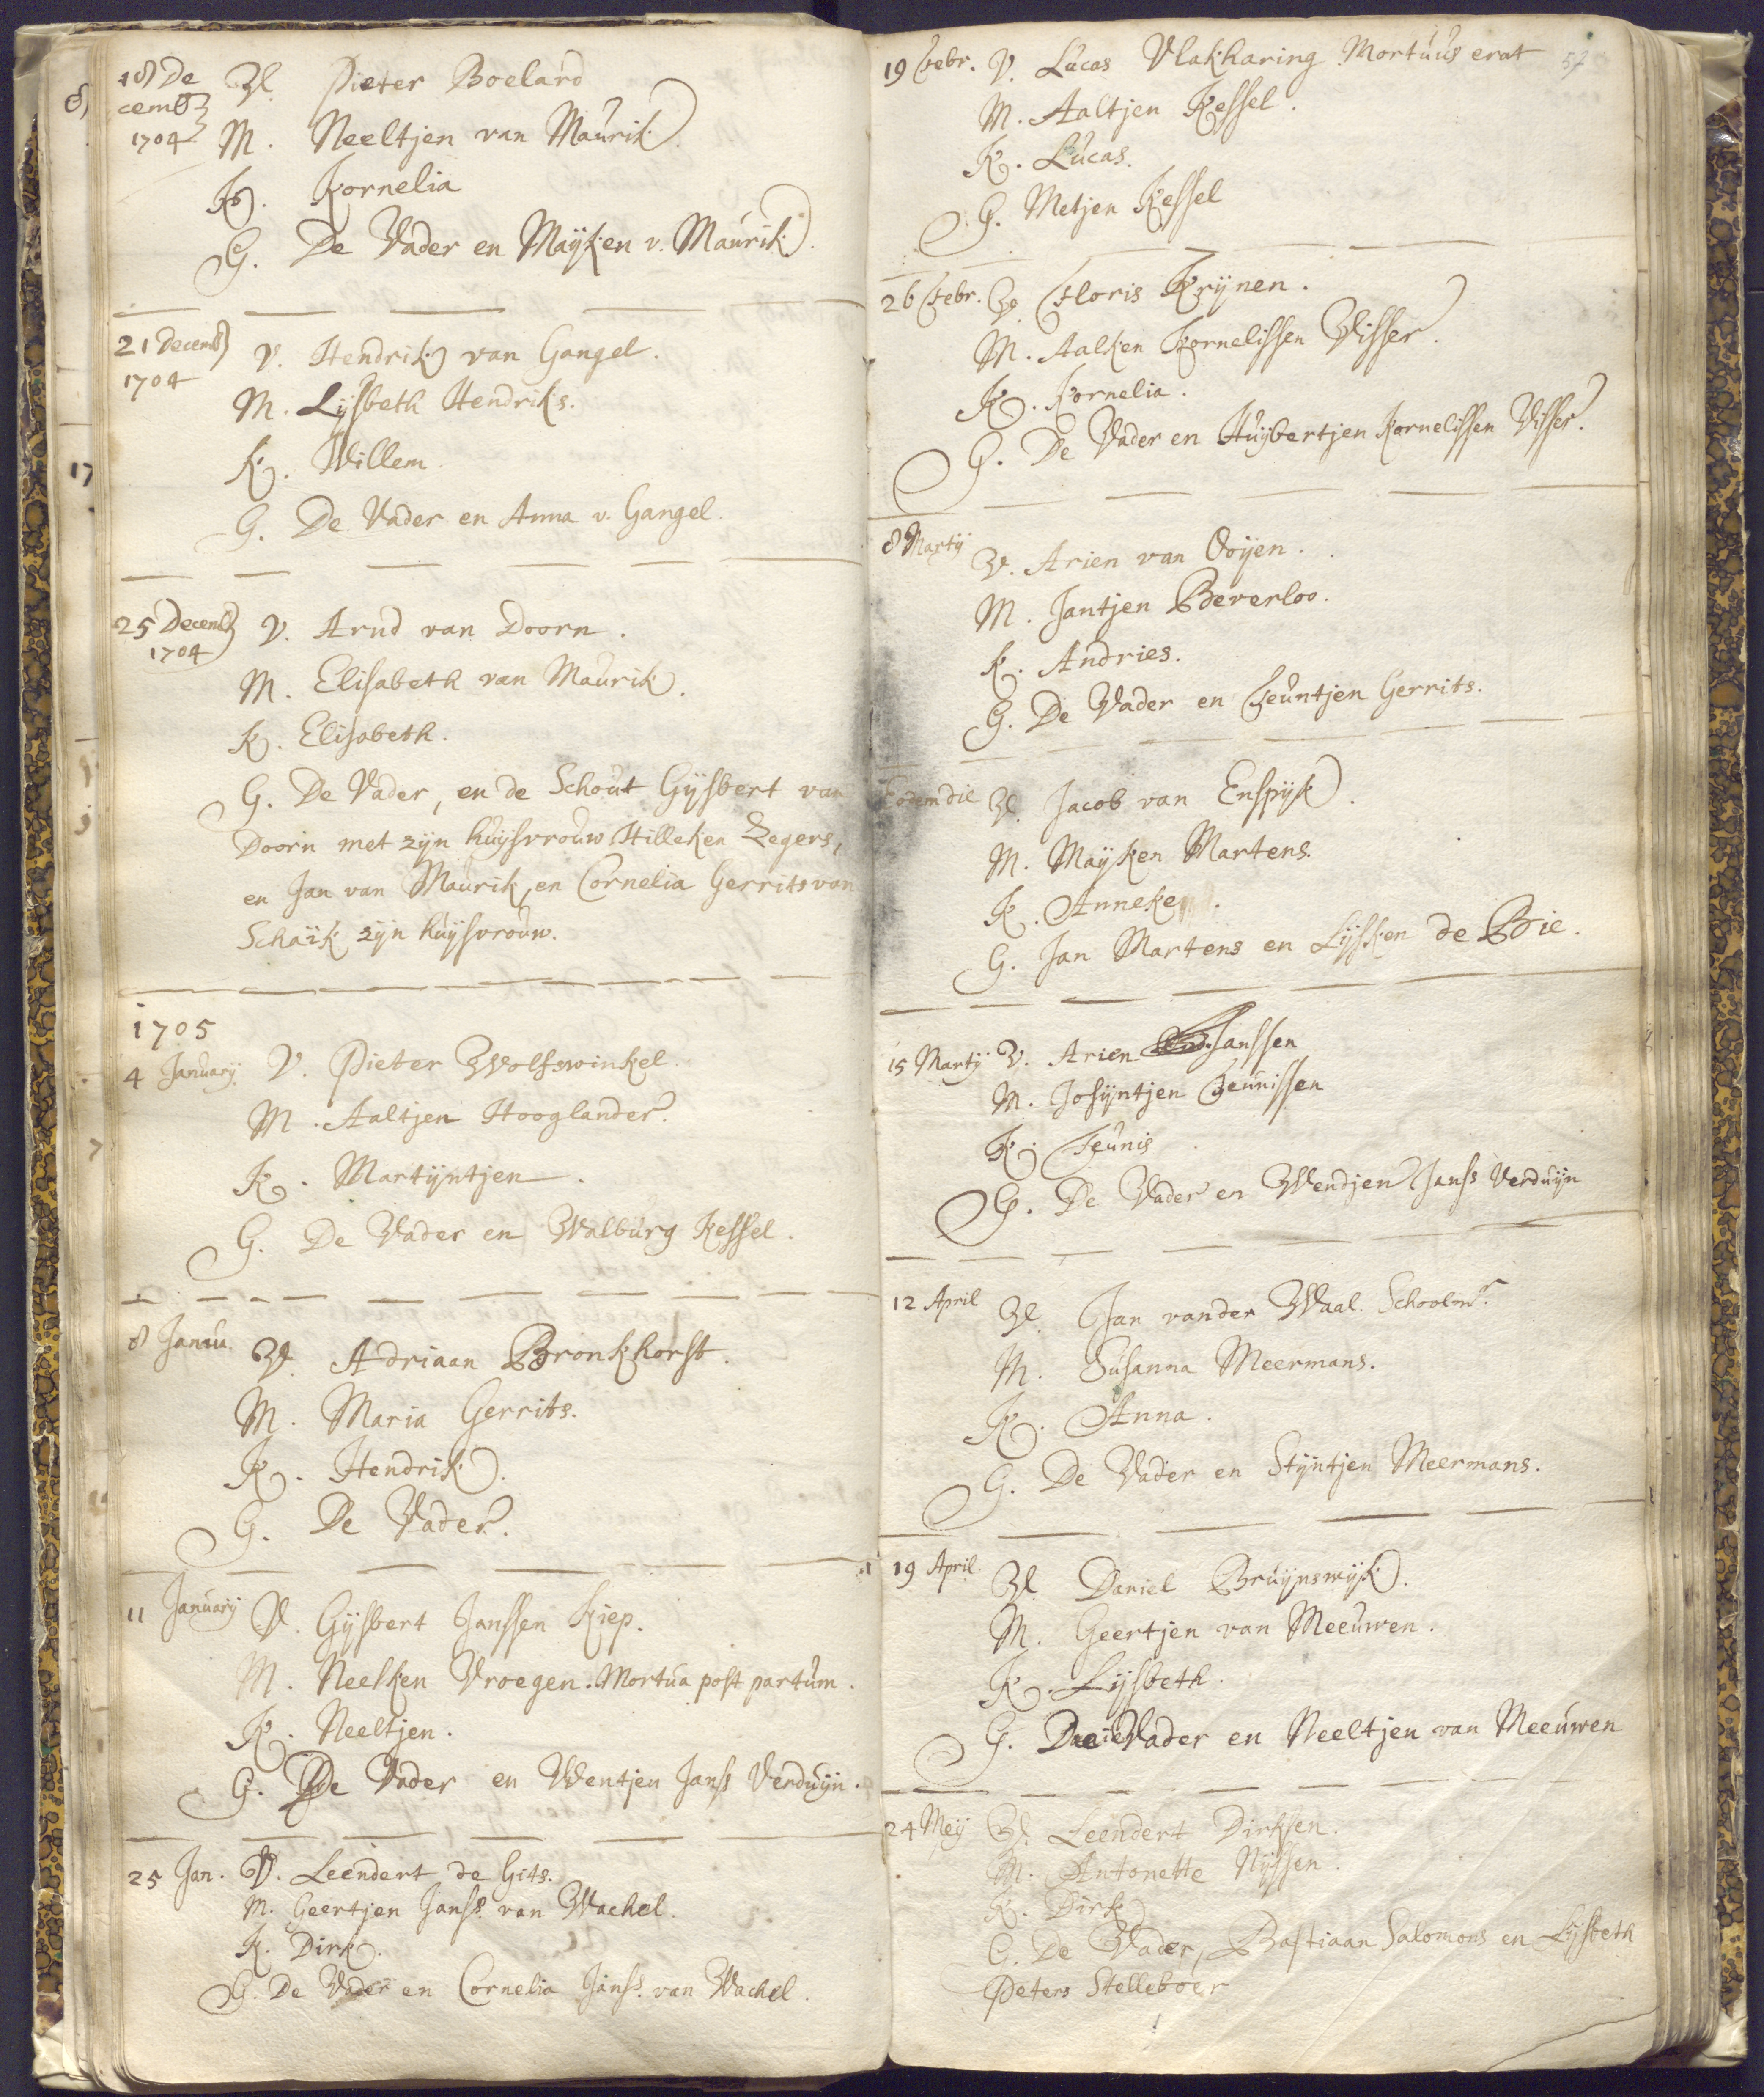 18 De
cemb
1704
V. Pieter Boelard
M. Neeltjen van Maurik.
K. Kornelia
G. De Vader en Maÿken v. Maurik.
21 Decemb
1704
V. Hendrik van Gangel.
M. Lÿsbeth Hendriks.
K. Willem
G. De Vader en Anna v. Gangel.
25 Decemb
1704
V. Arnd van Doorn.
M. Elisabeth van Maurik.
K. Elisabeth.
G. De Vader, en de Schout Gÿsbert van
Doorn met zÿn huÿsvrouw Hilleken Zegers,
en Jan van Maurik, en Cornelia Gerrits van
Schaïk zÿn huÿsvrouw.
1705
4 Januarÿ V. Pieter Wolfswinkel.
M. Aaltjen Hooglander.
K. Martÿntjen.
G. De Vader en Walburg Kessel.
8 Janu. V. Adriaan Bronkhorst.
M. Maria Gerrits.
K. Hendrik.
G. De Vader.
11 Januarÿ V. Gÿsbert Janssen Kiep.
M. Neelken Vroegen. Mortua post partum.
K. Neeltjen.
G. De Vader en Wentjen Janss Verduÿn.
25 Jan. V. Leendert de Gits.
M. Geertjen Janss. van Wachel.
K. Dirk.
G. De Vader en Cornelia Janss. van Wachel.
19 Febr. V. Lucas Vlakharing Mortuus erat
57
M. Aaltjen Kessel.
K. Lucas.
G. Metjen Kessel
26 Febr. V. Floris Krÿnen.
M. Aalken Kornelissen Visser.
K. Kornelia.
G. De Vader en Huÿbertjen Kornelissen Visser.
8 Martÿ
V. Arien van Ooÿen.
M. Jantjen Beverloo.
K. Andries.
G. De Vader en Teuntjen Gerrits.
Eodem die V. Jacob van Enspÿk.
M. Maÿken Martens.
K. Anneke.
G. Jan Martens en Lÿsken de Bie.
15 Martÿ V. Arien Janssen
M. Josÿntjen Teunissen
K. Teunis
G. De Vader en Wendjen Janss Verduÿn
12 April V. Jan vander Waal. Schoolmr.
M. Susanna Meermans.
K. Anna.
G. De Vader en Stÿntjen Meermans.
19 April. V. Daniel Bruÿnswÿk.
M. Geertjen van Meeuwen.
K. Lÿsbeth.
G. De Vader en Neeltjen van Meeuwen
24 Meÿ V. Leendert Dirksen.
M. Antonette Nÿssen.
K. Dirk
G. De Vader, Bastiaan Salomons en Lÿsbeth
Peters Stelleboer